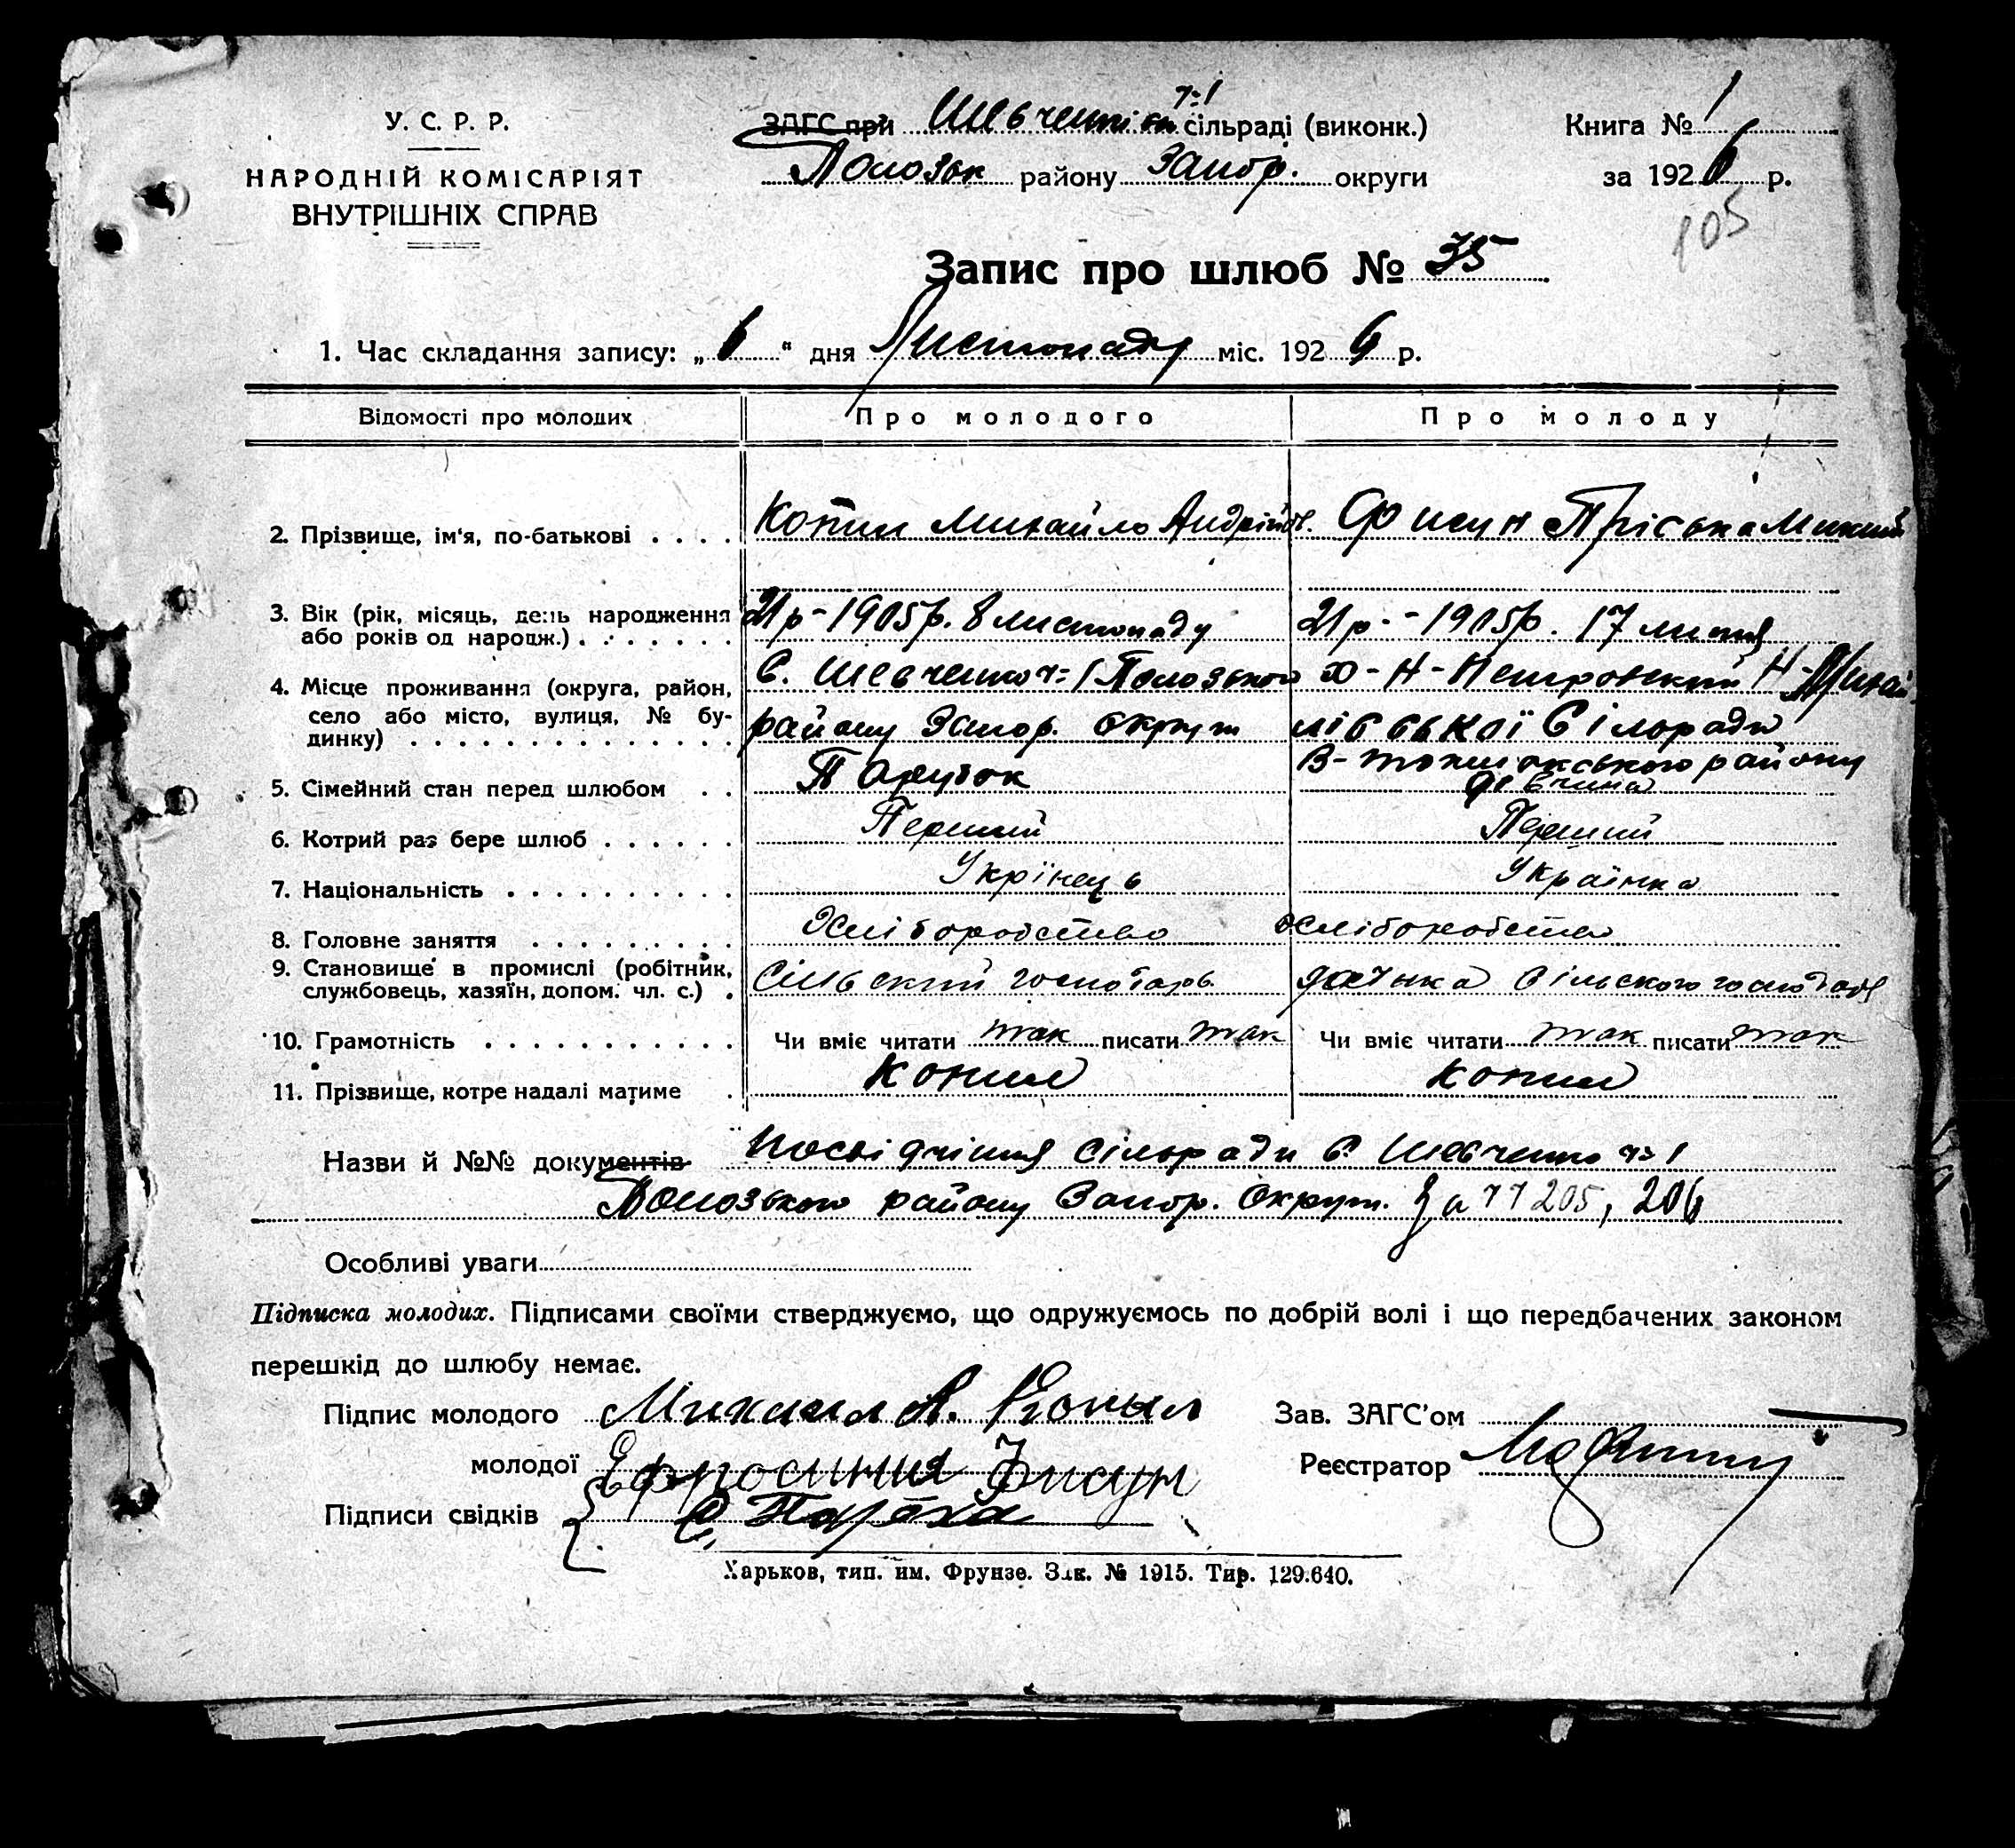 У. С. Р. Р.
НАРОДНІЙ КОМІСАРІЯТ
ВНУТРІШНІХ СПРАВ
ч-1
ЗАГС при Шевченків сільраді (виконк.)
Полозьк району Запор. округи
Книга № 1
за 1926 р.
105
Запис про шлюб № 35
1. Час складання запису: „6“ дня Листопаду міс. 1926 р.
Відомості про молодих Про молодого Про молоду
2. Прізвище, ім'я, по-батькові . . . . Копил Михайло Андрійов. Фисун Пріська Микит
3. Вік (рік, місяць, день народження
або років од народж.) . . . . . . . 21р - 1905р. 8 листопаду 21р. - 1905р. 17 липня
4. Місце проживання (округа, район, С. Шевченко ч-1 Полозького Х-Н-Петровский Н-Михай
село або місто, вулиця, № бу-
динку) . . . . . . . . . . . . . . району Запор. округи лівської Сільради
В-Токмакського району
5. Сімейний стан перед шлюбом . . Парубок дівчина
6. Котрий раз бере шлюб . . . . . . Перший Перший
7. Національність . . . . . . . . . . Укрінець Українка
8. Головне заняття . . . . . . . . . Хліборобство хліборобство
9. Становище в промислі (робітник,
службовець, хазяїн, допом. чл. с.) . Сільский господарь дочька сільского господаря
10. Грамотність . . . . . . . . . . . Чи вміє читати так писати так Чи вміє читати так писати так
11. Прізвище, котре надалі матиме . Копил Копил
Назви й №№ документів Посвідчіння Сільради С. Шевченко ч-1
Полозького району Запор. Округи. За чч 205, 206
Особливі уваги
Підписка молодих. Підписами своїми стверджуємо, що одружуємось по добрій волі і що передбачених законом
перешкід до шлюбу немає.
Підпис молодого Михаил А. Копыл Зав. ЗАГС'ом
молодої Ефросиния Фисун Реєстратор
Підписи свідків
Харьков, тип. им. Фрунзе. Зак. № 1915. Тир. 129.640.